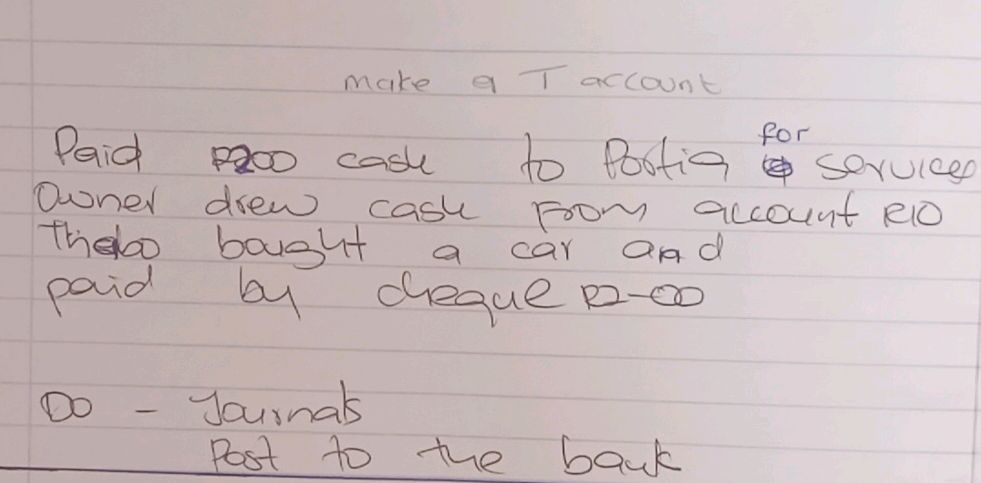 make a T account
for
Paid R200 cash to Portia services
Owner drew cash From account R10
Thabo bought a car and
paid by cheque R2-00
DO - Journals
Post to the bank